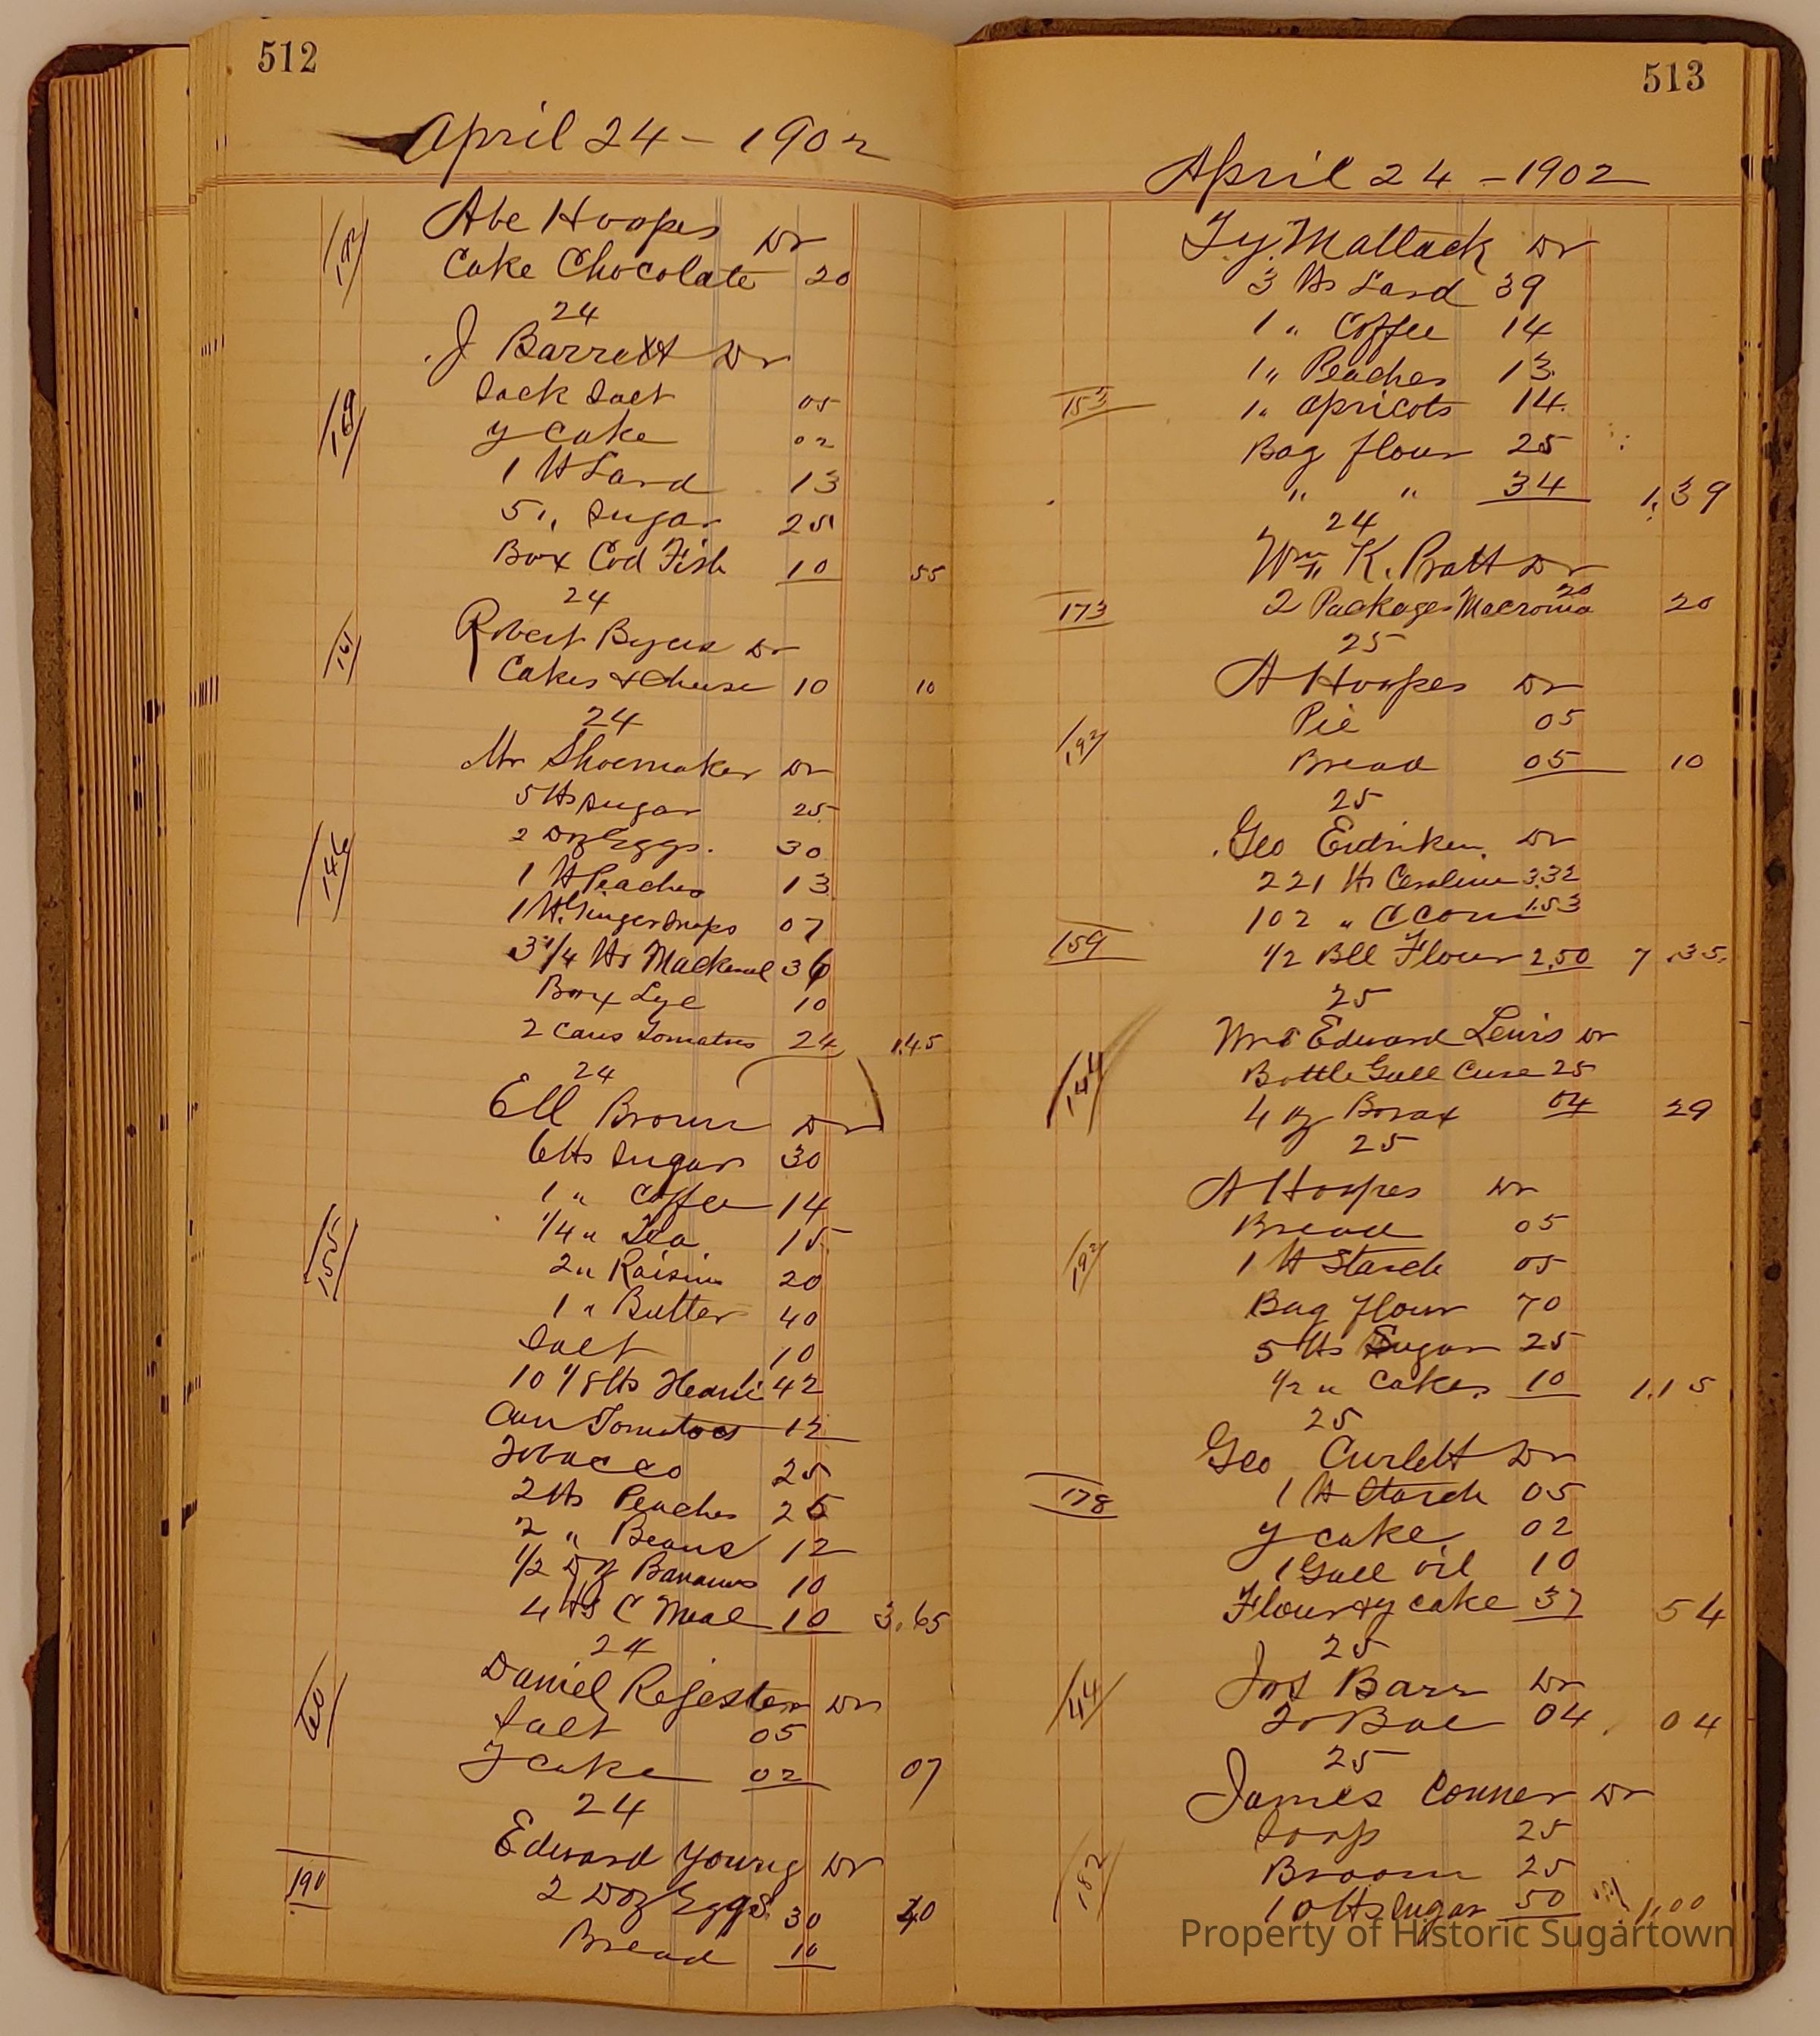 512
April 24 - 1902
192
Abe Hoopes Dr
Cake Chocolate 20
24
J Barrett Dr
Sack Salt 05
169
y cake 02
1 lb Lard 13
5 " Sugar 25
Box Cod Fish 10 55
24
Robert Byers Dr
161
Cakes & Cheese 10 10
24
Mr Shoemaker Dr
5 lbs Sugar 25
2 Doz Eggs. 30
146
1 lb Peaches 13
1 lb Ginger Snaps 07
3 1/4 lbs Mackerel 36
Box Lye 10
2 Cans Tomatoes 24 1.45
24
Ell Brown Dr
6 lbs Sugar 30
1 " Coffee 14
155
1/4 " Tea 15
2 " Raisins 20
1 " Butter 40
Salt 10
10 1/8 lbs 42
Can Tomatoes 12
Tobacco 25
2 lbs Peaches 26
2 " Beans 12
1/2 Doz Bananas 10
4 lbs C Meal 10 3.65
24
Daniel Regester Dr
60
Salt 05
y cake 02 07
24
Edward Young Dr
190
2 Doz Eggs 30 40
Bread 10
513
April 24 - 1902
Ty. Matlack Dr
3 lbs Lard 39
1 " Coffee 14
1 " Peaches 13
153
1 " Apricots 14
Bag flour 25
" " 34 1.39
24
Wm K. Pratt Dr
20
173
2 Packages Macroma 20
25
A Hoopes Dr
Pie 05
192
Bread 05 10
25
Geo Dr
221 lbs 3.32
102 " C Corn 1.53
159
1/2 Bll Flour 2.50 7.35
25
Mrs Edward Lewis Dr
144
Bottle Gall Cure 25
4 oz Borax 04 29
25
A Hoopes Dr
Bread 05
192
1 lb Starch 05
Bag flour 70
5 lbs Sugar 25
1/2 " Cakes 10 1.15
25
Geo Curlett Dr
178
1 lb Starch 05
y cake 02
1 Gall oil 10
Flour & y cake 37 54
25
44
Jos Barr Dr
To Bal 04 04
25
James Conner Dr
Soap 25
182
Broom 25
10 lbs Sugar 50 1.00
Property of Historic Sugartown